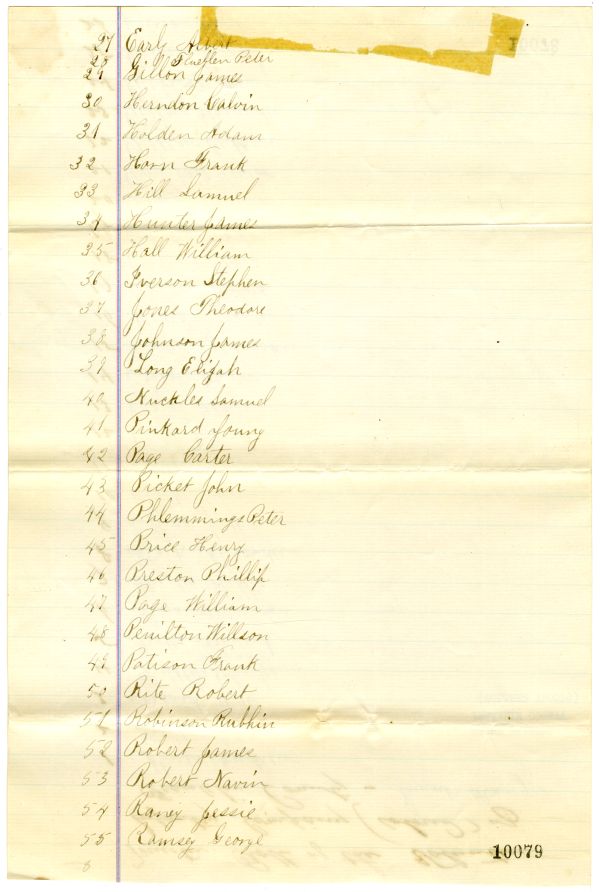 27 Early Albert
28 Gill Peter
29 Gillon James
30 Herndon Calvin
31 Holden Adam
32 Horn Frank
33 Hill Samuel
34 Hunter James
35 Hall William
36 Iverson Stephen
37 Jones Theodore
38 Johnson James
39 Long Elijah
40 Nuckles Samuel
41 Pinkard Young
42 Page Carter
43 Picket John
44 Phlemmings Peter
45 Price Henry
46 Preston Phillip
47 Page William
48 Penilton Willson
49 Patison Frank
50 Rite Robert
51 Robinson Rubhin
52 Robert James
53 Robert Navin
54 Raney Jessie
55 Ramsey George
10079